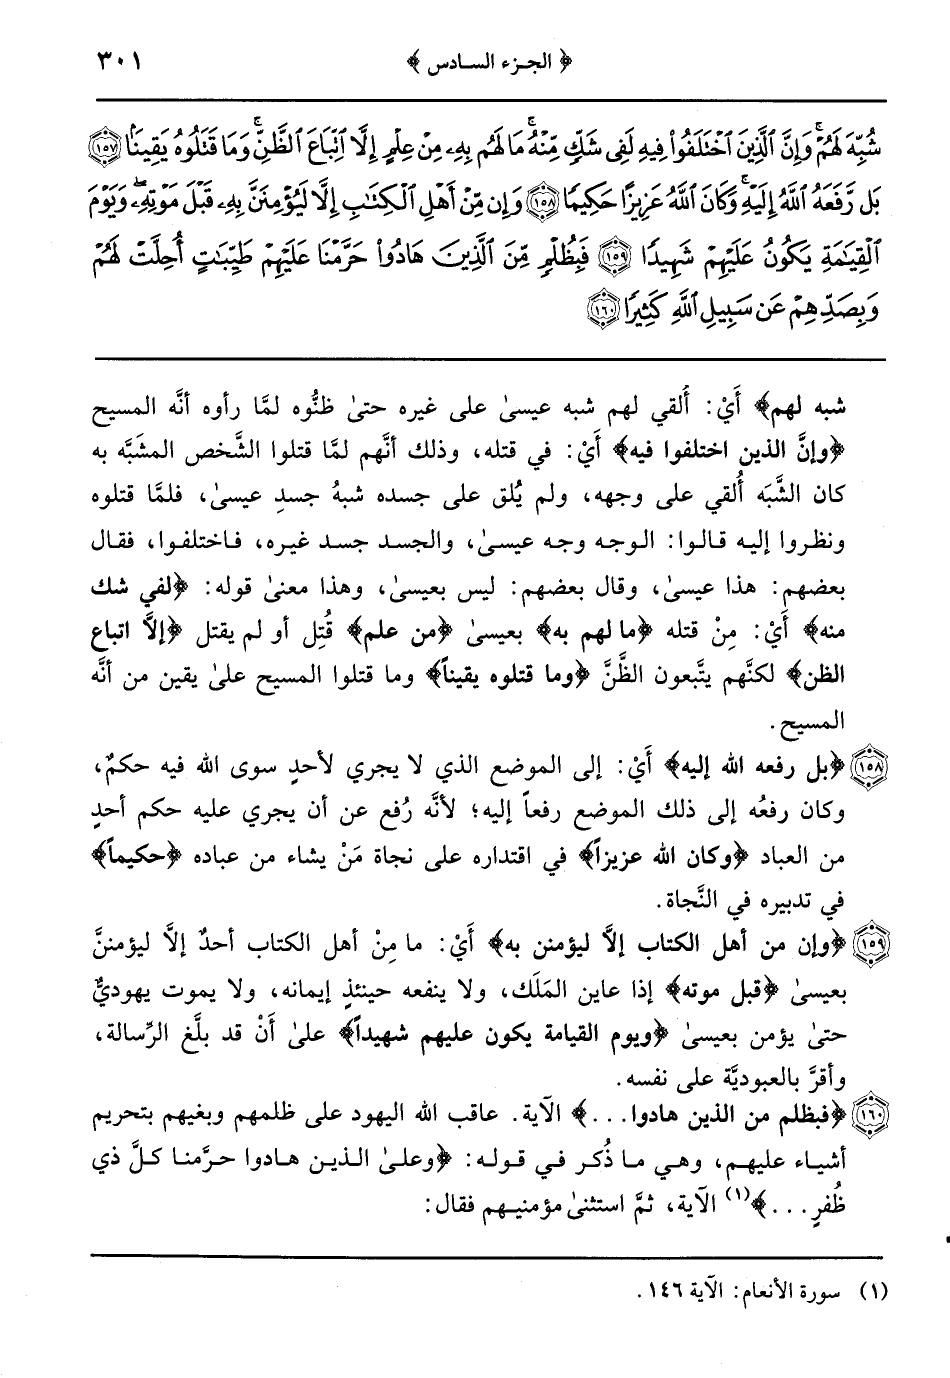 ﴿ الجزء السادس ﴾ ٣٠١
شُبِّهَ لَهُمْ ۚ وَإِنَّ ٱلَّذِينَ ٱخْتَلَفُوا۟ فِيهِ لَفِى شَكٍّ مِّنْهُ ۚ مَا لَهُم بِهِۦ مِنْ عِلْمٍ إِلَّا ٱتِّبَاعَ ٱلظَّنِّ ۚ وَمَا قَتَلُوهُ يَقِينًۢا ١٥٧
بَل رَّفَعَهُ ٱللَّهُ إِلَيْهِ ۚ وَكَانَ ٱللَّهُ عَزِيزًا حَكِيمًا ١٥٨ وَإِن مِّنْ أَهْلِ ٱلْكِتَٰبِ إِلَّا لَيُؤْمِنَنَّ بِهِۦ قَبْلَ مَوْتِهِۦ ۖ وَيَوْمَ
ٱلْقِيَٰمَةِ يَكُونُ عَلَيْهِمْ شَهِيدًا ١٥٩ فَبِظُلْمٍ مِّنَ ٱلَّذِينَ هَادُوا۟ حَرَّمْنَا عَلَيْهِمْ طَيِّبَٰتٍ أُحِلَّتْ لَهُمْ
وَبِصَدِّهِمْ عَن سَبِيلِ ٱللَّهِ كَثِيرًا ١٦٠
شبه لهم﴾ أَيْ: أُلقي لهم شبه عيسىٰ على غيره حتىٰ ظنُّوه لمَّا رأوه أنَّه المسيح
﴿وإنَّ الذين اختلفوا فيه﴾ أَيْ: في قتله، وذلك أنَّهم لمَّا قتلوا الشَّخص المشبَّه به
كان الشَّبَه أُلقي على وجهه، ولم يُلق على جسده شبهُ جسدِ عيسىٰ، فلمَّا قتلوه
ونظروا إليه قالوا: الوجه وجه عيسىٰ، والجسد جسد غيره، فاختلفوا، فقال
بعضهم: هذا عيسىٰ، وقال بعضهم: ليس بعيسىٰ، وهذا معنىٰ قوله: ﴿لفي شك
منه﴾ أَيْ: مِنْ قتله ﴿ما لهم به﴾ بعيسىٰ ﴿من علم﴾ قُتِل أو لم يقتل ﴿إلاَّ اتباع
الظن﴾ لكنَّهم يتَّبعون الظَّنَّ ﴿وما قتلوه يقيناً﴾ وما قتلوا المسيح علىٰ يقين من أنَّه
المسيح.
١٥٨ ﴿بل رفعه الله إليه﴾ أَيْ: إلى الموضع الذي لا يجري لأحدٍ سوى الله فيه حكمٌ،
وكان رفعُه إلى ذلك الموضع رفعاً إليه؛ لأنَّه رُفع عن أن يجري عليه حكم أحدٍ
من العباد ﴿وكان الله عزيزاً﴾ في اقتداره على نجاة مَنْ يشاء من عباده ﴿حكيماً﴾
في تدبيره في النَّجاة.
١٥٩ ﴿وإن من أهل الكتاب إلاَّ ليؤمنن به﴾ أَيْ: ما مِنْ أهل الكتاب أحدٌ إلاَّ ليؤمننَّ
بعيسىٰ ﴿قبل موته﴾ إذا عاين المَلَك، ولا ينفعه حينئذٍ إيمانه، ولا يموت يهوديٌّ
حتىٰ يؤمن بعيسىٰ ﴿ويوم القيامة يكون عليهم شهيداً﴾ علىٰ أَنْ قد بلَّغ الرِّسالة،
وأقرَّ بالعبوديَّة على نفسه.
١٦٠ ﴿فبظلم من الذين هادوا...﴾ الآية. عاقب الله اليهود على ظلمهم وبغيهم بتحريم
أشياء عليهم، وهي ما ذُكر في قوله: ﴿وعلىٰ الذين هادوا حرَّمنا كلَّ ذي
ظُفرٍ...﴾(١) الآية، ثمَّ استثنىٰ مؤمنيهم فقال:
(١) سورة الأنعام: الآية ١٤٦.